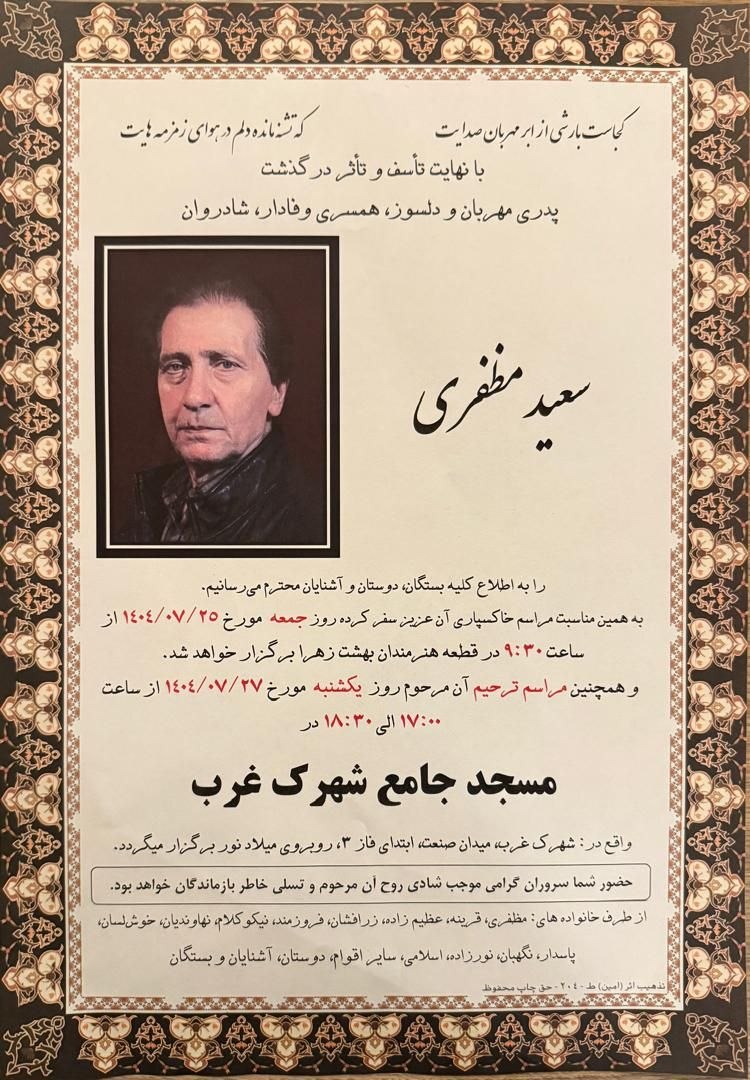 کجاست بارشی از ابر مهربان صدایت که تشنه مانده دلم در هوای زمزمه هایت
با نهایت تأسف و تأثر درگذشت
پدری مهربان و دلسوز، همسری وفادار، شادروان
سعید مظفری
را به اطلاع کلیه بستگان، دوستان و آشنایان محترم می‌رسانیم.
به همین مناسبت مراسم خاکسپاری آن عزیز سفر کرده روز جمعه مورخ ۱۴۰۴/۰۷/۲۵ از
ساعت ۹:۳۰ در قطعه هنرمندان بهشت زهرا برگزار خواهد شد.
و همچنین مراسم ترحیم آن مرحوم روز یکشنبه مورخ ۱۴۰۴/۰۷/۲۷ از ساعت
۱۷:۰۰ الی ۱۸:۳۰ در
مسجد جامع شهرک غرب
واقع در: شهرک غرب، میدان صنعت، ابتدای فاز ۳، روبروی میلاد نور برگزار میگردد.
حضور شما سروران گرامی موجب شادی روح آن مرحوم و تسلی خاطر بازماندگان خواهد بود.
از طرف خانواده های: مظفری، قرینه، عظیم زاده، زرافشان، فروزمند، نیکوکلام، نهاوندیان، خوش‌لسان،
پاسدار، نگهبان، نورزاده، اسلامی، سایر اقوام، دوستان، آشنایان و بستگان
تذهیب اثر (امین) ط - ۲۰۴ - حق چاپ محفوظ